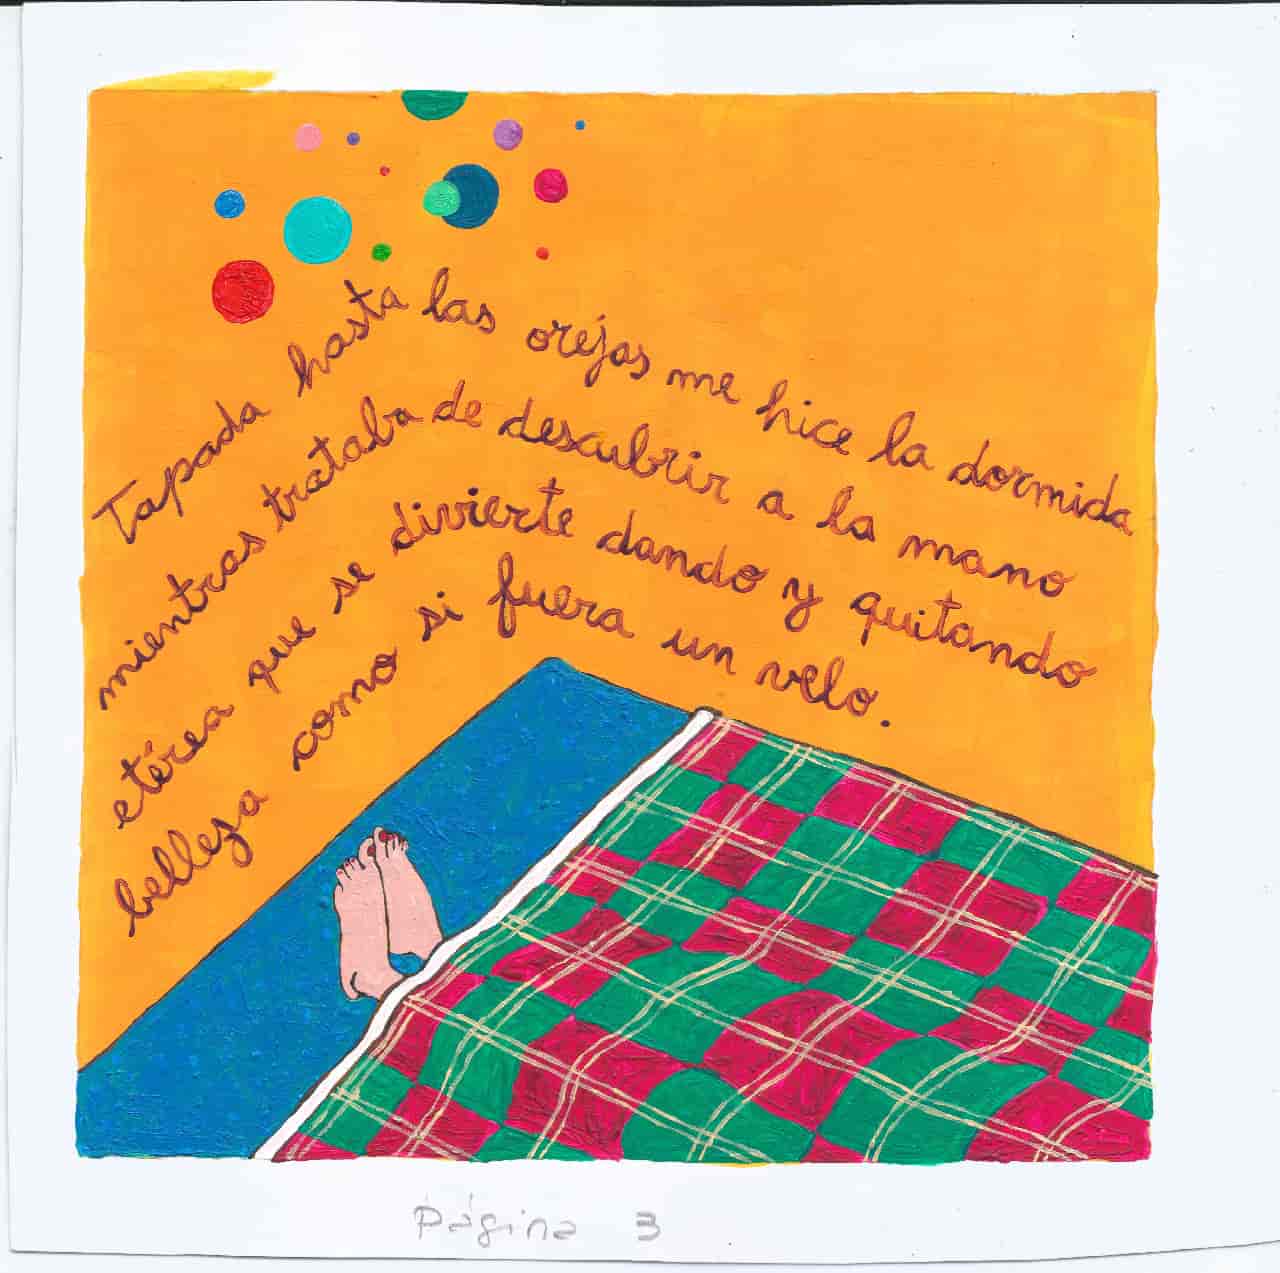 Tapada hasta las orejas me hice la dormida
mientras trataba de descubrir a la mano
etérea que se divierte dando y quitando
belleza como si fuera un velo.
Página 3